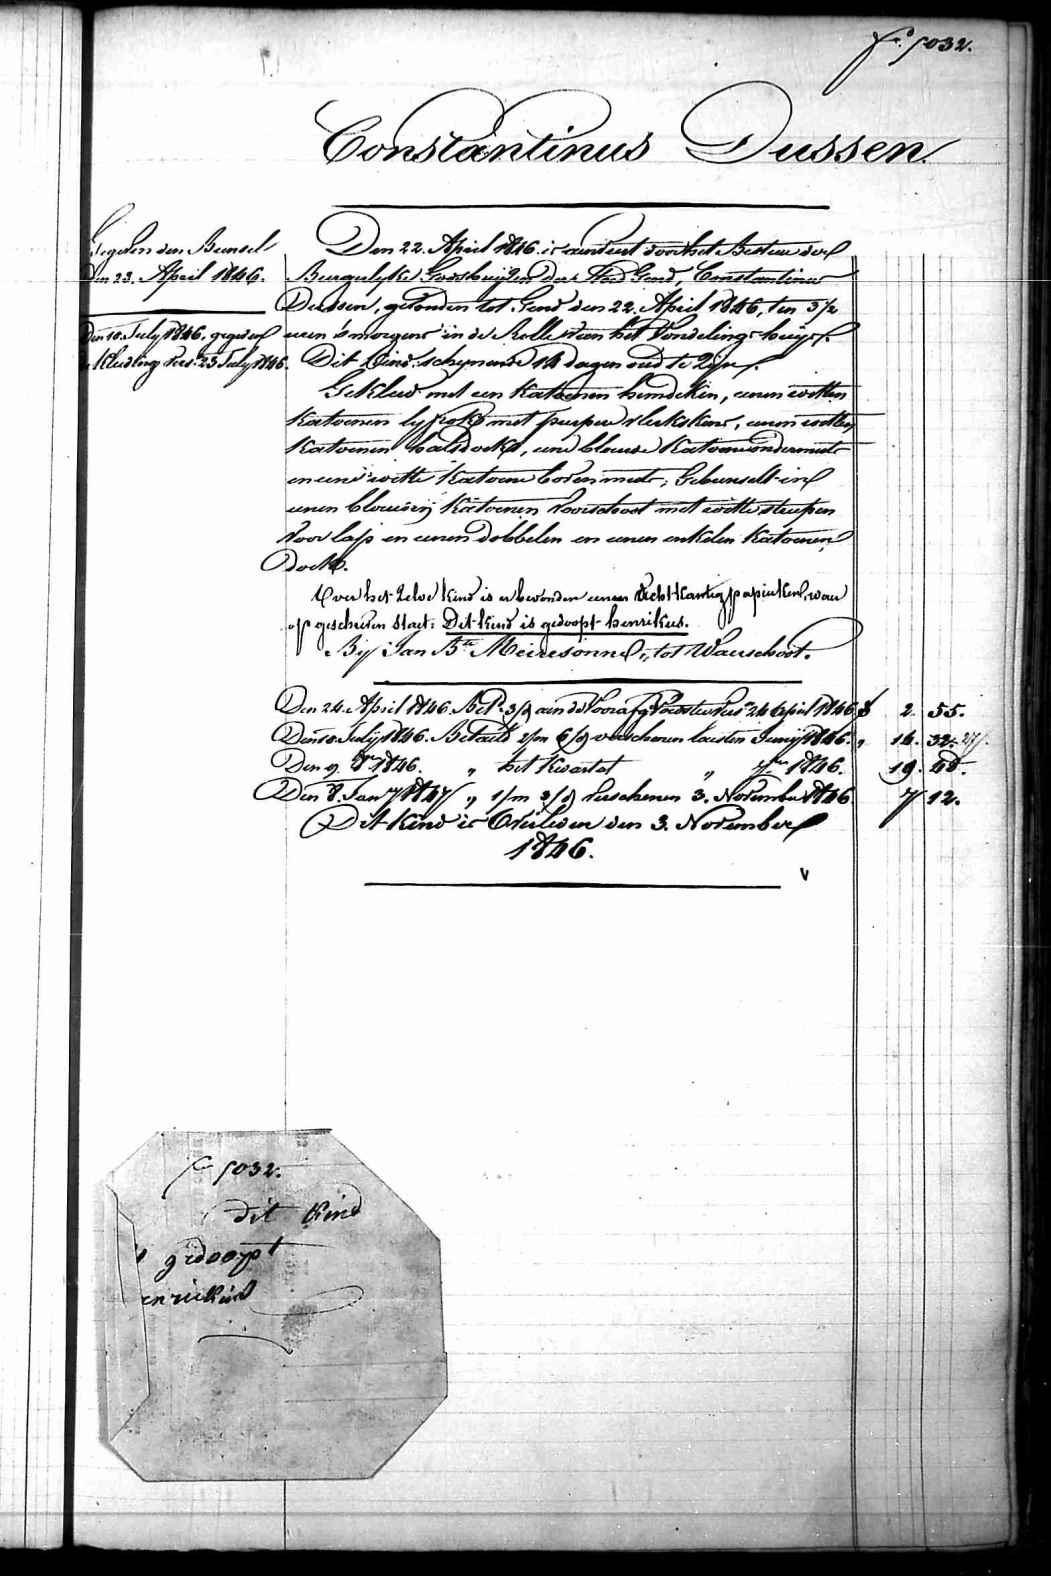 f° 1032.
Constantinus Dussen.
Gegeven den Bunsel
den 23. April 1846.
Den 10 July 1846, gegeven
Kleeding Vers: 23 July 1846.
Den 22. April 1846. is rentent voor het Bestuur der
Burgelyke Godshuijzen der Stad Gend, Constantinus
Dussen, gevonden tot Gend den 22. April 1846, ten 3½
uren 's morgens in de Rolle van het Vondelinge huijs.
Dit Kind schynende 14 dagen oud te Zijn.
Gekleed met een Katoenen hemdeken, eenen witten
Katoenen lyfrok met purper vlekskens, eenen witten
Katoenen halsdoek, eene blauwe Katoene ondermuts
en eene witte Katoene bovenmuts; Gebunselt in
eenen blauwen Katoenen voorschoot met witte streepen
voor lap en eenen dobbelen en eenen enkelen Katoenen
doek.
Over het Zelve Kind is er bevonden eenen Achtkantig papierken, waer
op geschreven staet: Dit kind is gedoopt henrikus.
Bij Jan Bte Meiresonne, tot Waerschoot.
Den 24 April 1846. Bet. 3/9 aen de Voorafg Voedster Vers 24 April 1846 2. 55.
Den 10 July 1846. Betaelt 1/m 6/9 verschenen laesten Junij 1846. " 14. 32.
Den 9. 8r 1846. " het Kwartal " 7ber 1846. 19. 48.
Den 8. Jany 1847 " 1/m 3/9 Verschenen 3. November 1846 7 12.
Dit Kind is Overleden den 3. November
1846.
v
f° 1032.
dit Kind
gedoopt
enrickus